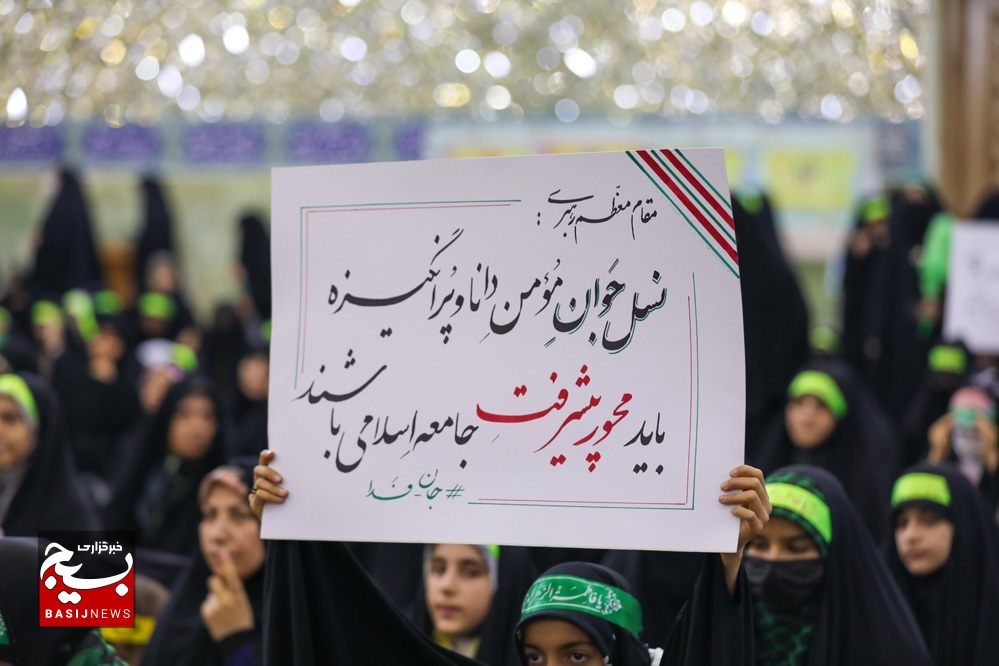 مقام معظّم رهبری :
نسل جَوانِ مؤمنِ دانا و پُرانگیزه
باید محور پیشرفت جامعه اسلامی باشند
#جان_فدا
یا فاطمة الزهرا
خبرگزاری
بسیج
BASIJNEWS